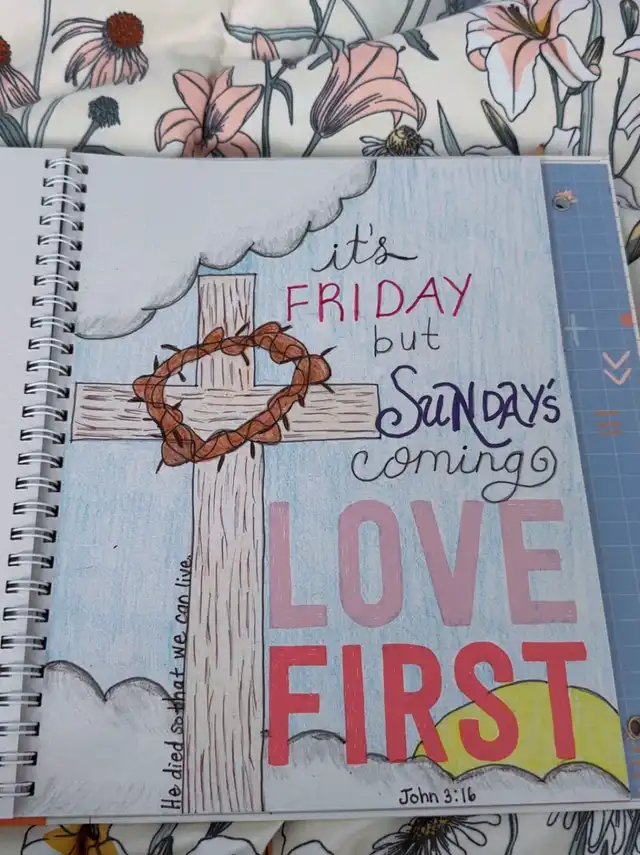 it's
FRIDAY
but
SUNDAY's
coming
LOVE
FIRST
He died so that we can live.
John 3:16